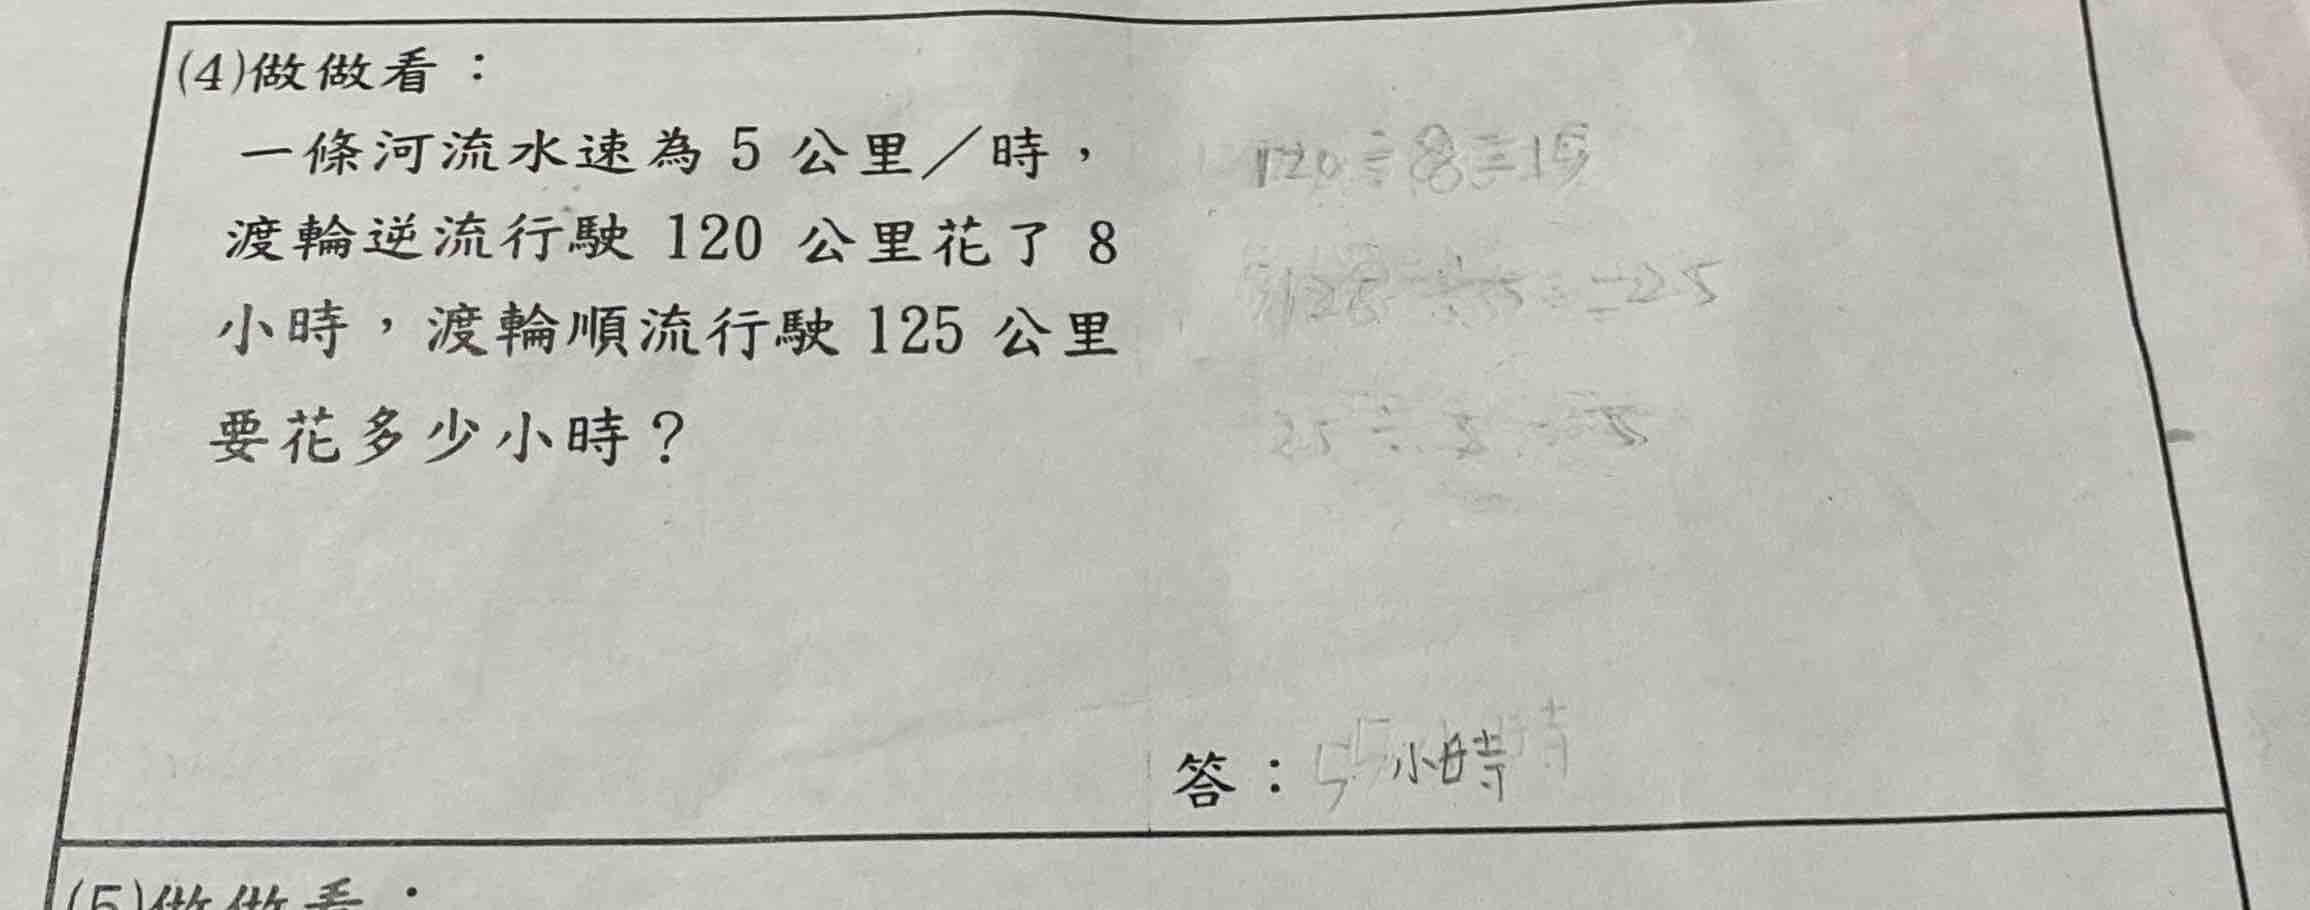 (4)做做看：
一條河流水速為 5 公里／時，
渡輪逆流行駛 120 公里花了 8
小時，渡輪順流行駛 125 公里
要花多少小時？
120÷8=15
答：5小時
(5)做做看：